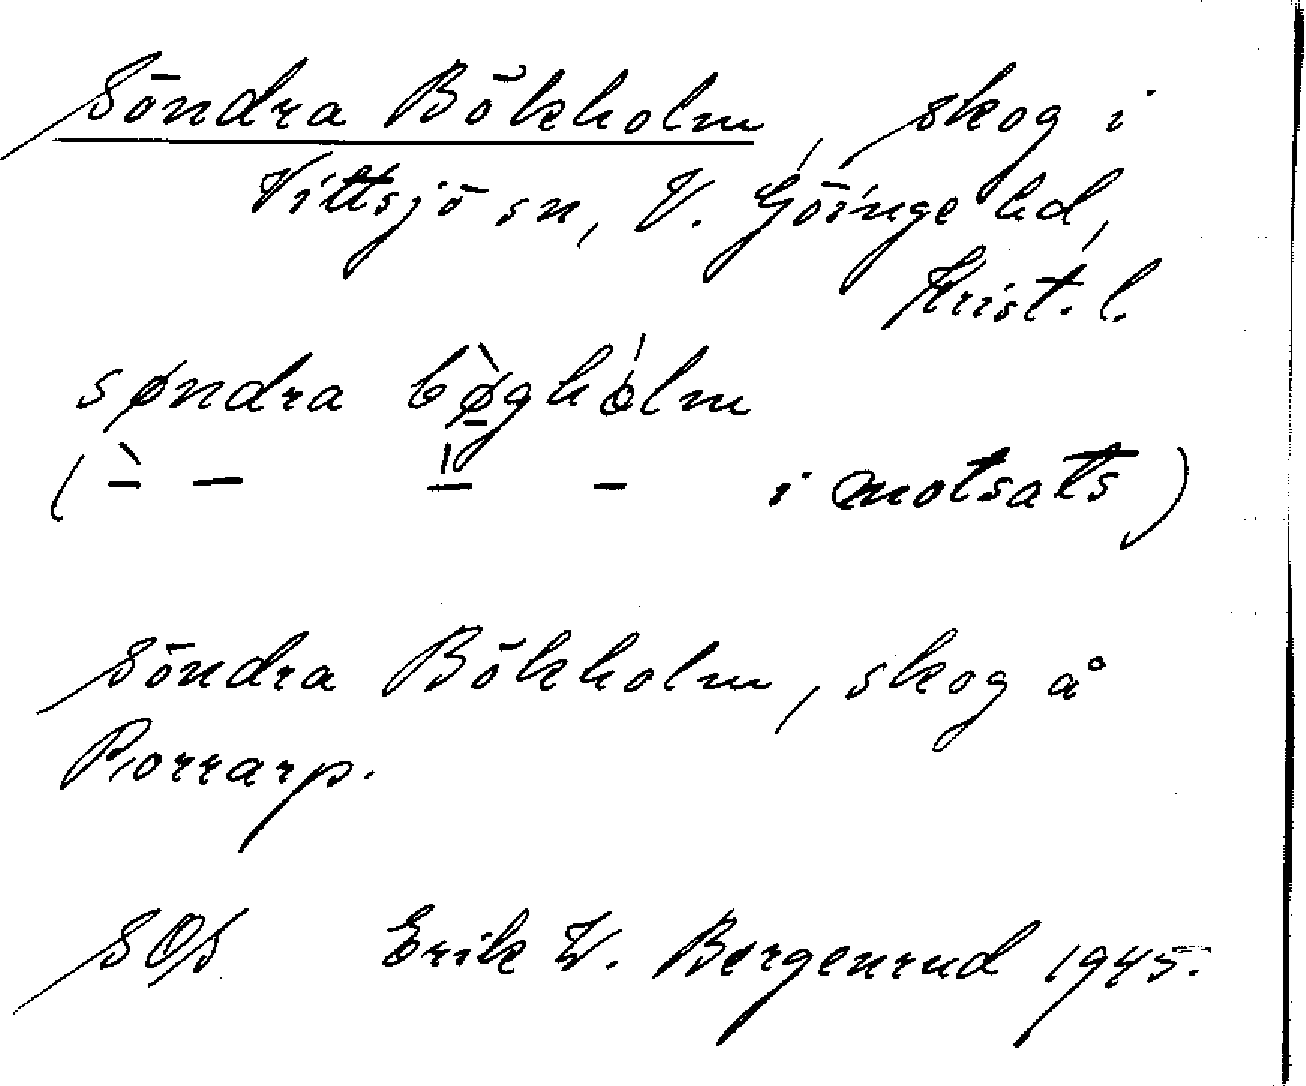 Söndra Bökholm, skog i
Vittsjö sn, V. Göinge hd,
Krist. l.
søndra bø̀ghólm
(`– – '– – i motsats)
Söndra Bökholm, skog å
Porrarp.
SOS Erik W. Bergenrud 1945.